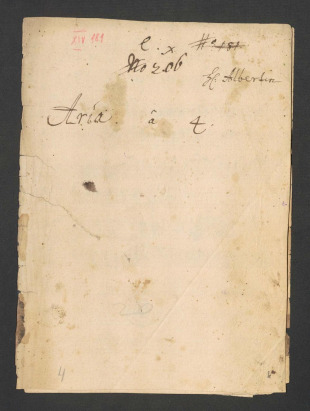 XIV 181
C. x. No 181
No 206
H: Alberlin
Aria à 4.
4